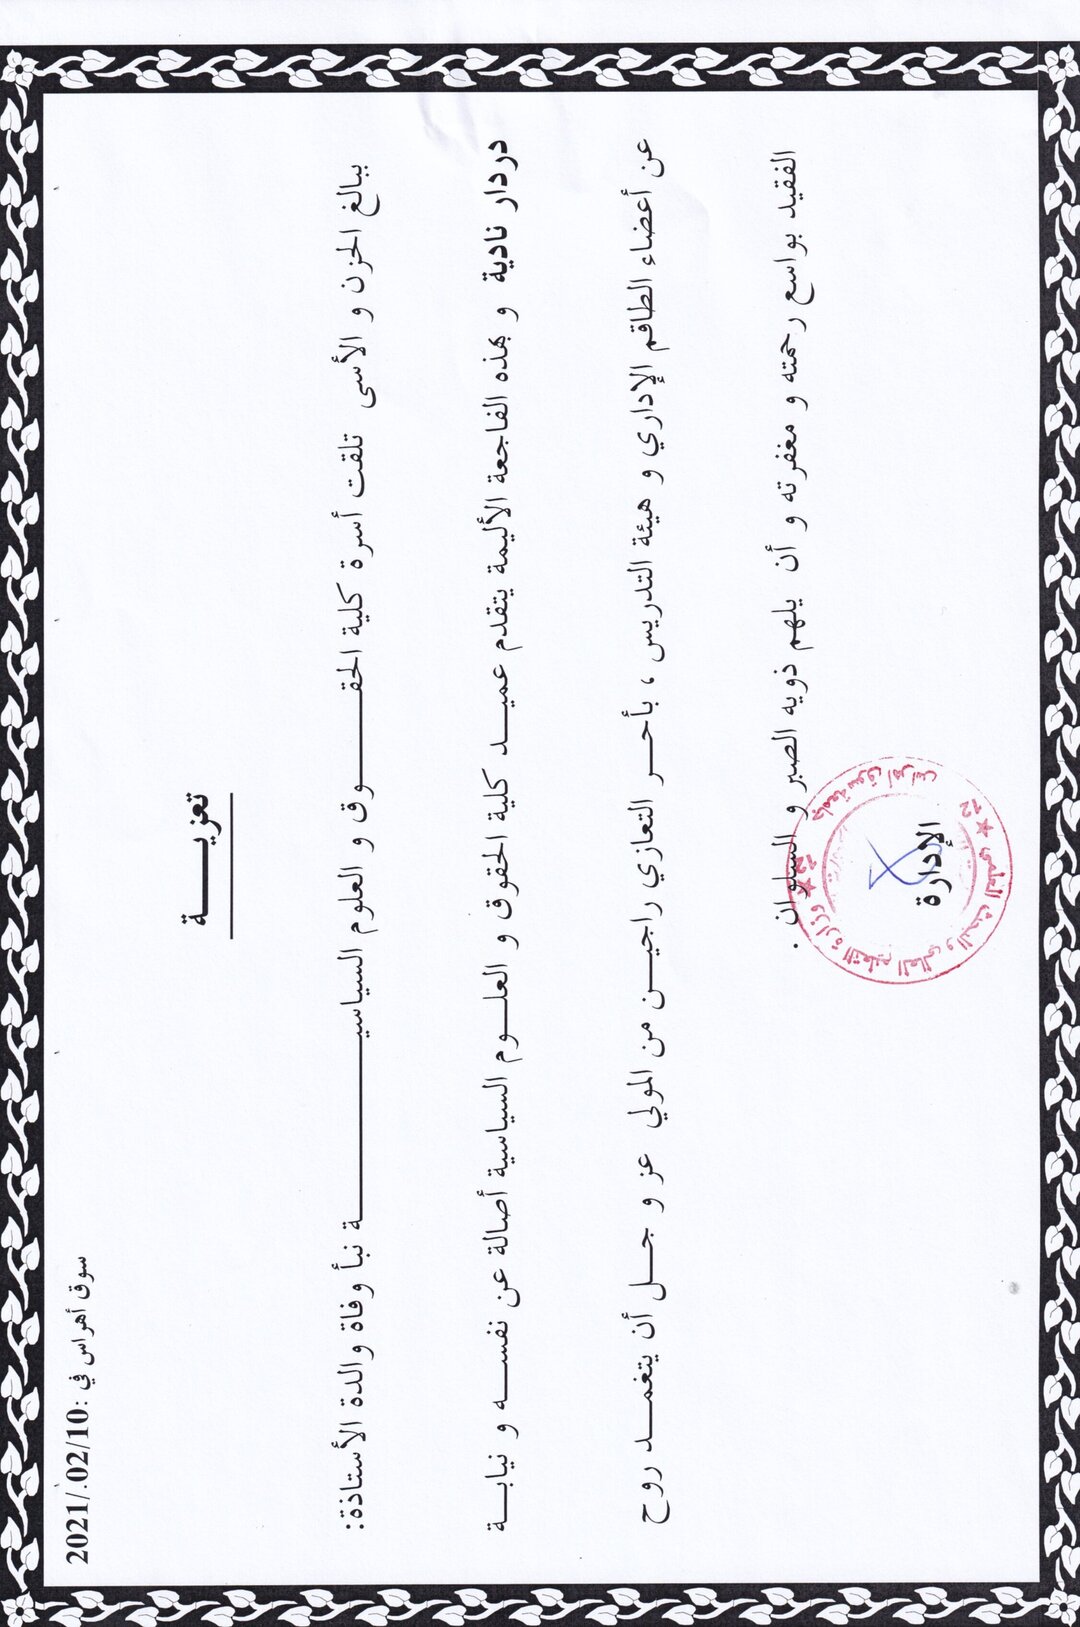 سوق أهراس في :2021/.02/10
تعزيـــــة
ببالغ الحزن و الأسى تلقت أسرة كلية الحقـــــوق و العلوم السياسيـــــــــــة نبأ وفاة والدة الأستاذة:
دردار نادية و بهذه الفاجعة الأليمة يتقدم عميـــد كلية الحقوق و العلـــوم السياسية أصالة عن نفســـه و نيابـــة
عن أعضاء الطاقم الإداري و هيئة التدريس ، بأحـــر التعازي راجيـــن من المولي عز و جـــل أن يتغمـــد روح
الفقيد بواسع رحمته و مغفرته و أن يلهم ذويه الصبر و السلوان .
الإدارة
وزارة التعليم العالي و البحث العلمي
جامعة سوق أهراس